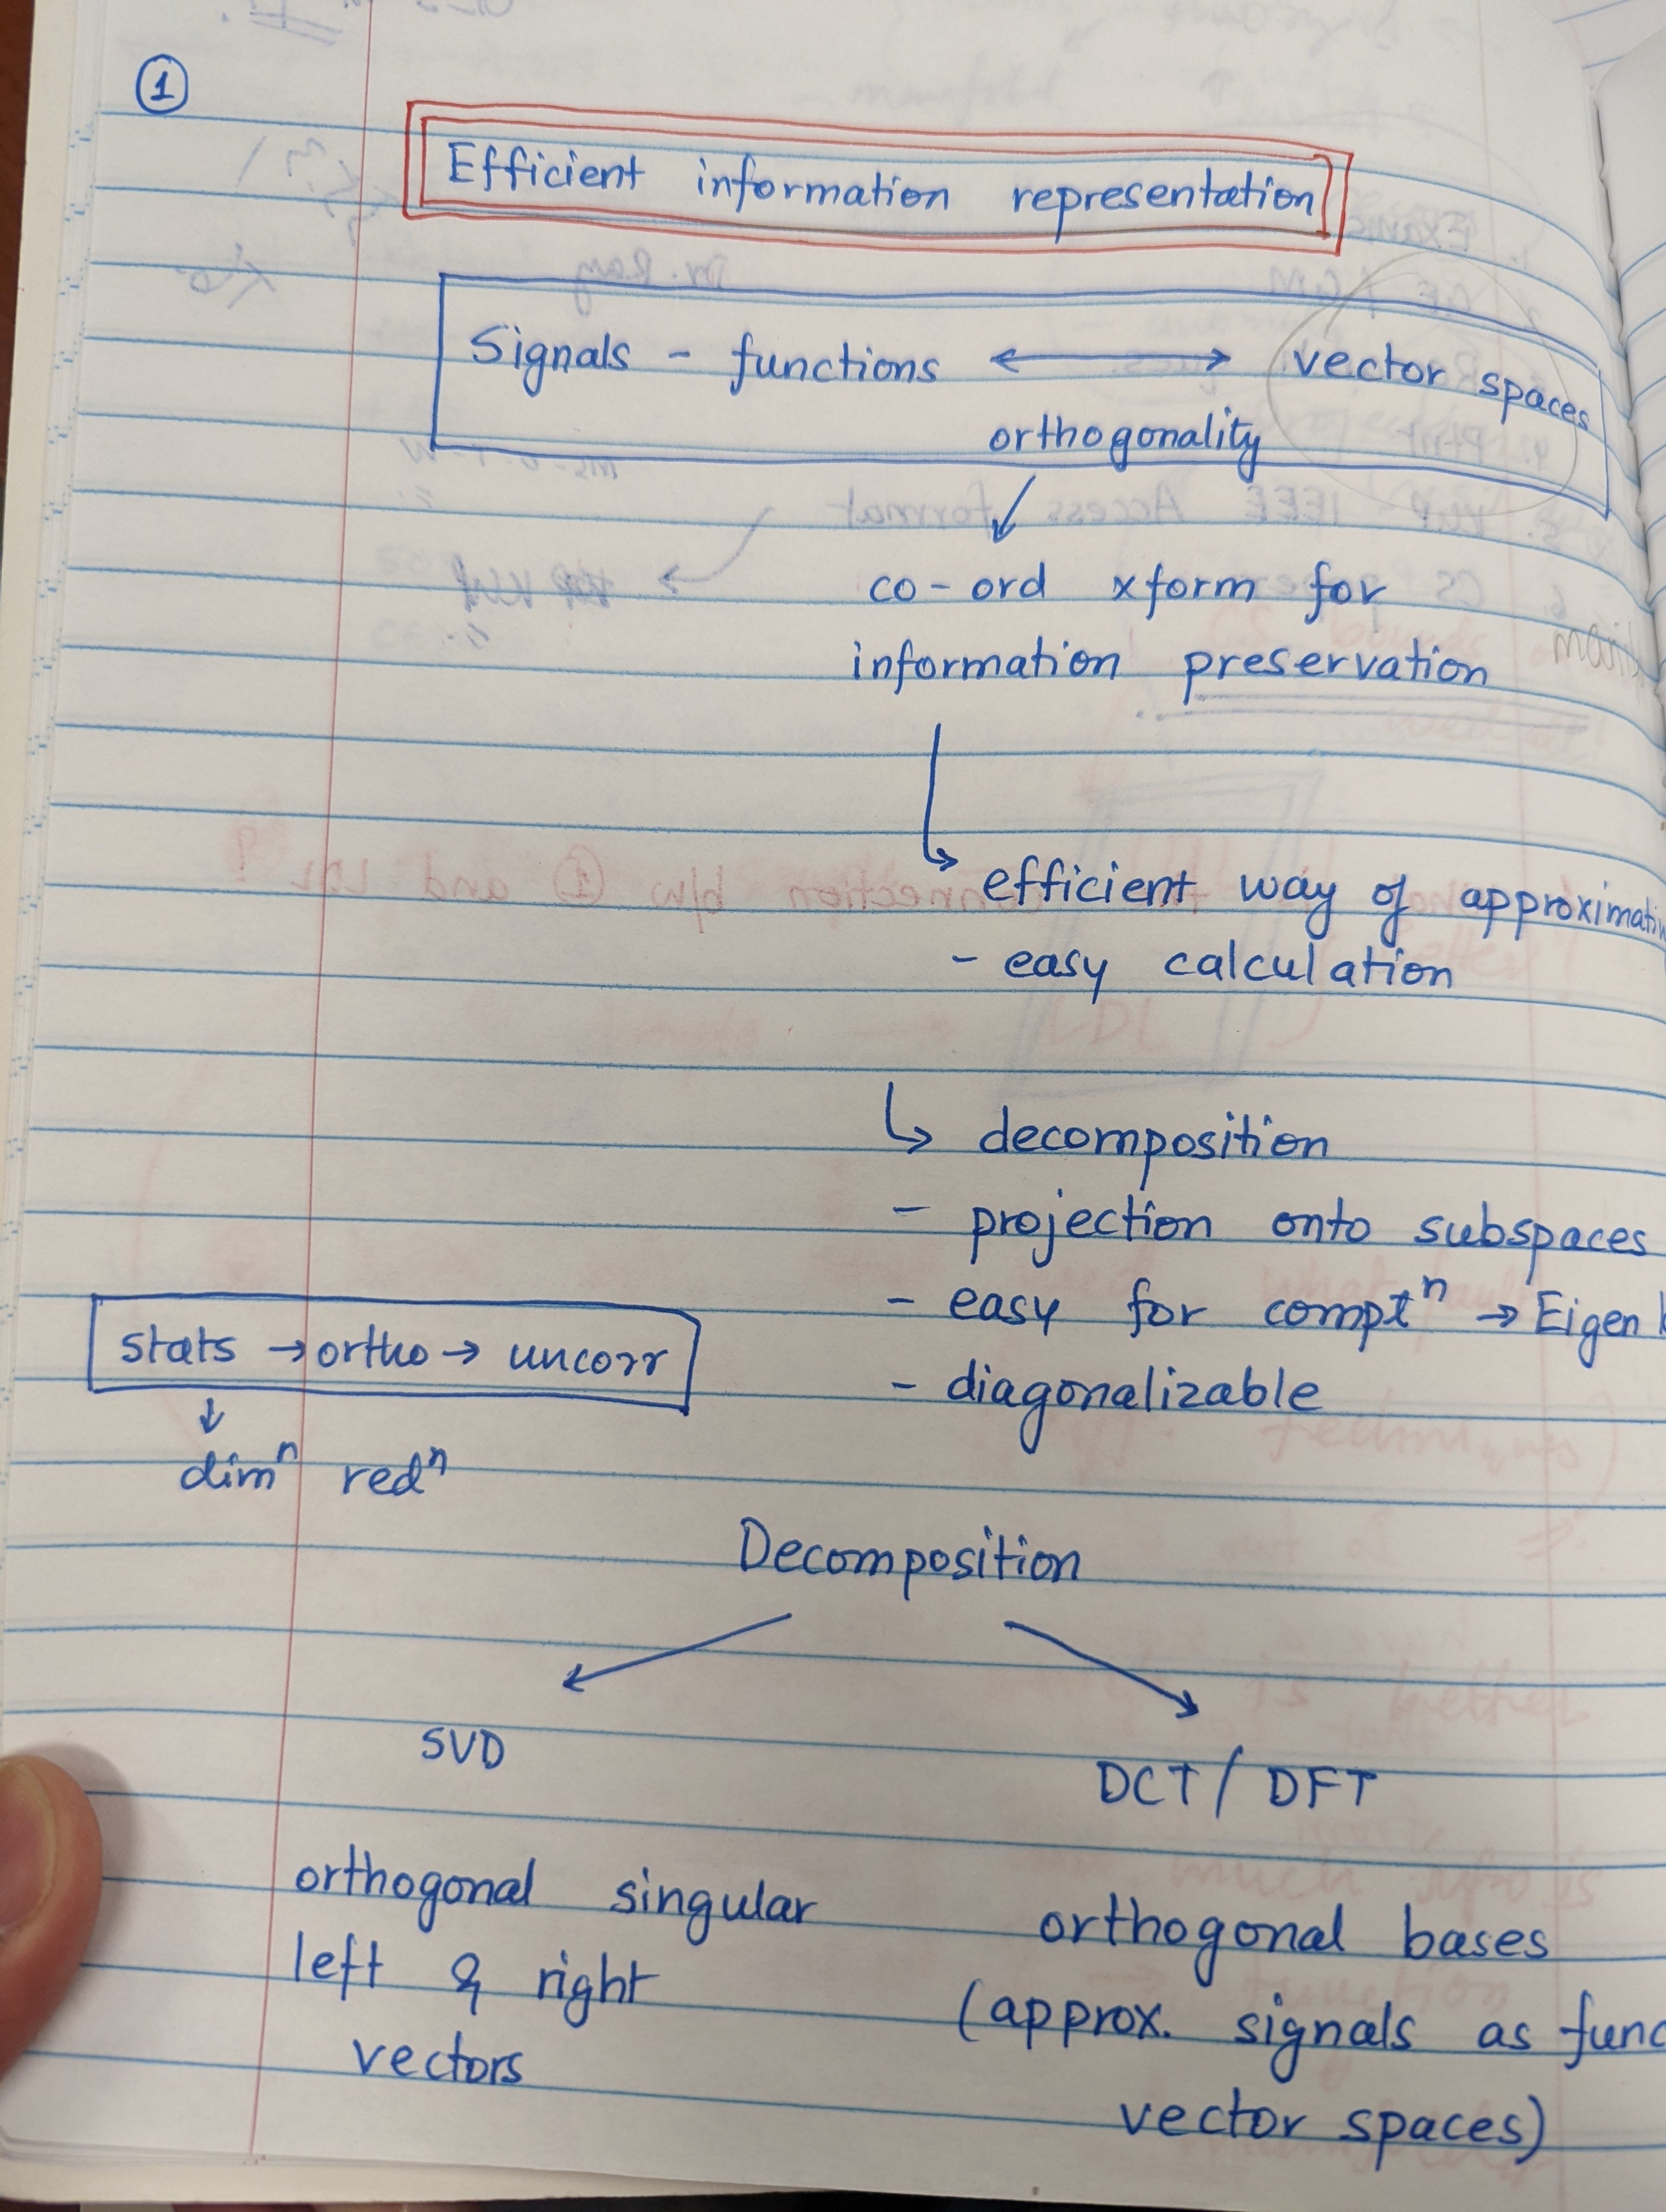 ①
Efficient information representation
Signals - functions ↔ vector spaces
orthogonality
co-ord xform for
information preservation
efficient way of approximatin
- easy calculation
decomposition
- projection onto subspaces
- easy for comptⁿ → Eigen
- diagonalizable
stats → ortho → uncorr
dimⁿ redⁿ
Decomposition
SVD
DCT / DFT
orthogonal singular
left & right
vectors
orthogonal bases
(approx. signals as func
vector spaces)